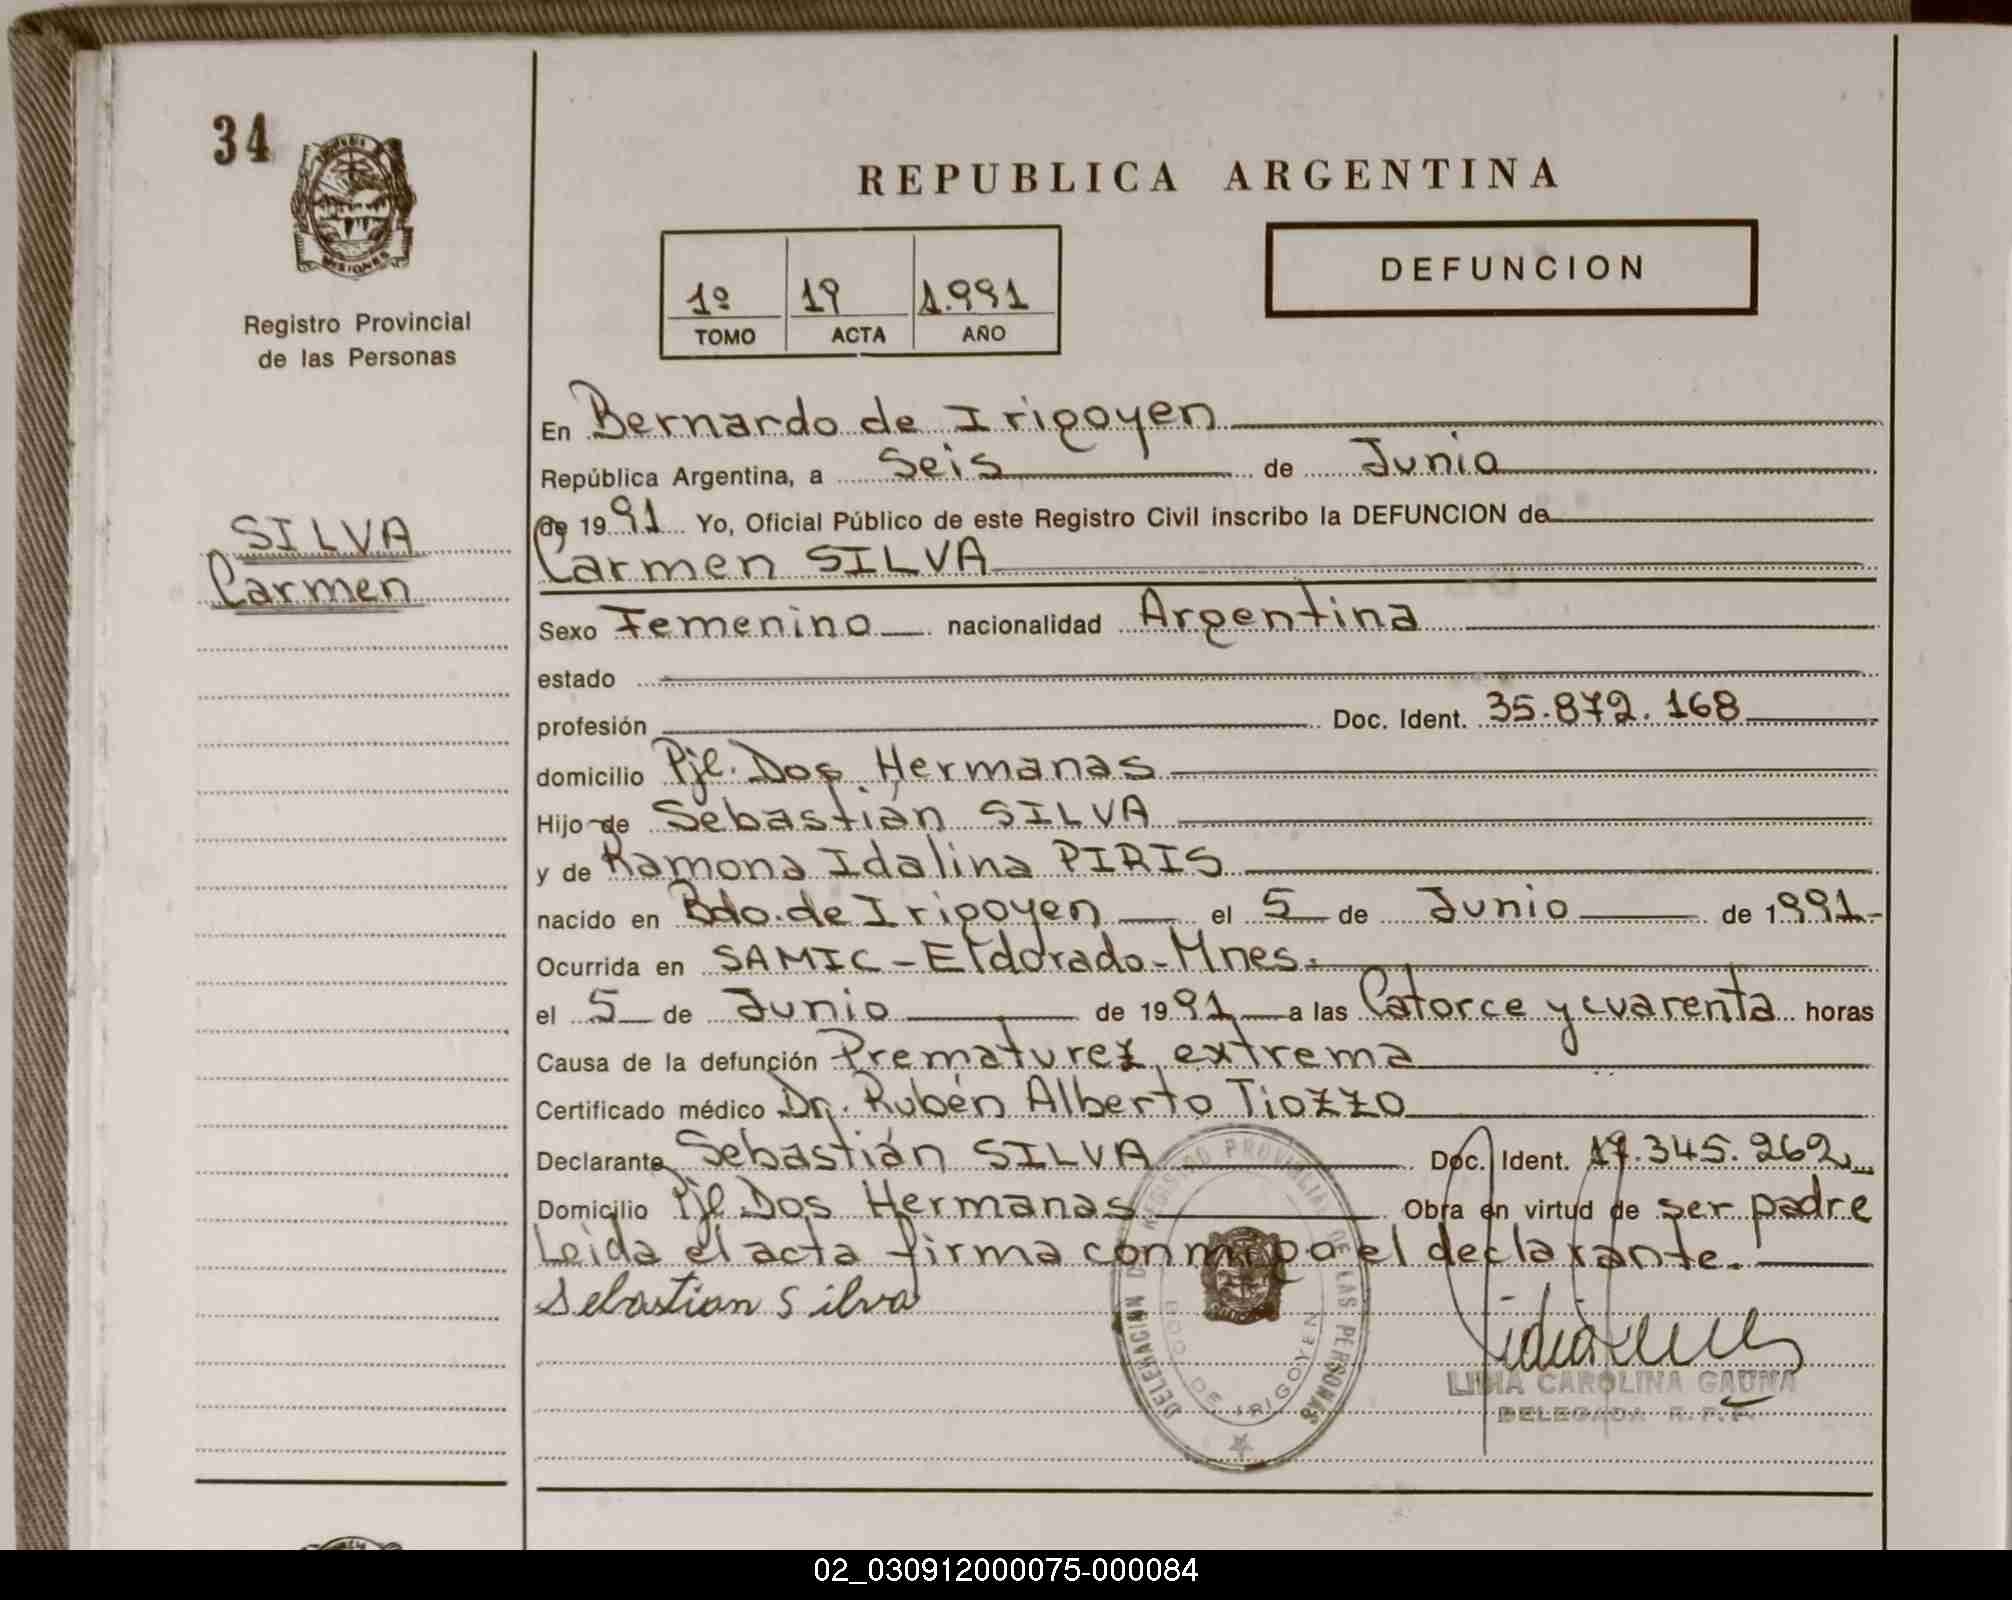 34
MISIONES
Registro Provincial
de las Personas
SILVA
Carmen
REPUBLICA ARGENTINA
1º 19 1.991
TOMO ACTA AÑO
DEFUNCION
En Bernardo de Irigoyen
República Argentina, a Seis de Junio
de 1991 Yo, Oficial Público de este Registro Civil inscribo la DEFUNCION de
Carmen SILVA
Sexo Femenino nacionalidad Argentina
estado
profesión Doc. Ident. 35.872.168
domicilio Pje. Dos Hermanas
Hijo de Sebastián SILVA
y de Ramona Idalina PIRIS
nacido en Bdo. de Irigoyen el 5 de Junio de 1991.-
Ocurrida en SAMIC - Eldorado - Mnes.
el 5 de Junio de 1991 a las Catorce y cuarenta horas
Causa de la defunción Prematurez extrema
Certificado médico Dr. Rubén Alberto Tiozzo
Declarante Sebastián SILVA Doc. Ident. 17.345.262
Domicilio Pje. Dos Hermanas Obra en virtud de ser padre
Leida el acta firma conmigo el declarante.
Sebastian Silva
DELEGACION DE REGISTRO PROVINCIAL DE LAS PERSONAS
BDO. DE IRIGOYEN
LIDIA CAROLINA GAUNA
DELEGADA R.P.P.
02_030912000075-000084